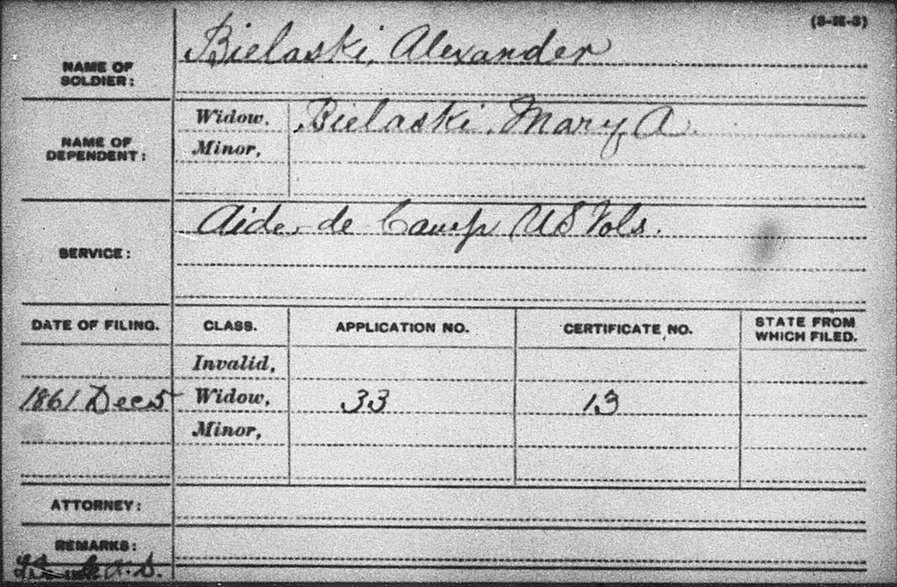 (3-H-3)
NAME OF SOLDIER: Bielaski, Alexander
NAME OF DEPENDENT: Widow, Bielaski, Mary A.
Minor,
SERVICE: Aide de Camp US Vols.
DATE OF FILING. CLASS. APPLICATION NO. CERTIFICATE NO. STATE FROM WHICH FILED.
Invalid,
1861 Dec 5 Widow, 33 13
Minor,
ATTORNEY:
REMARKS: